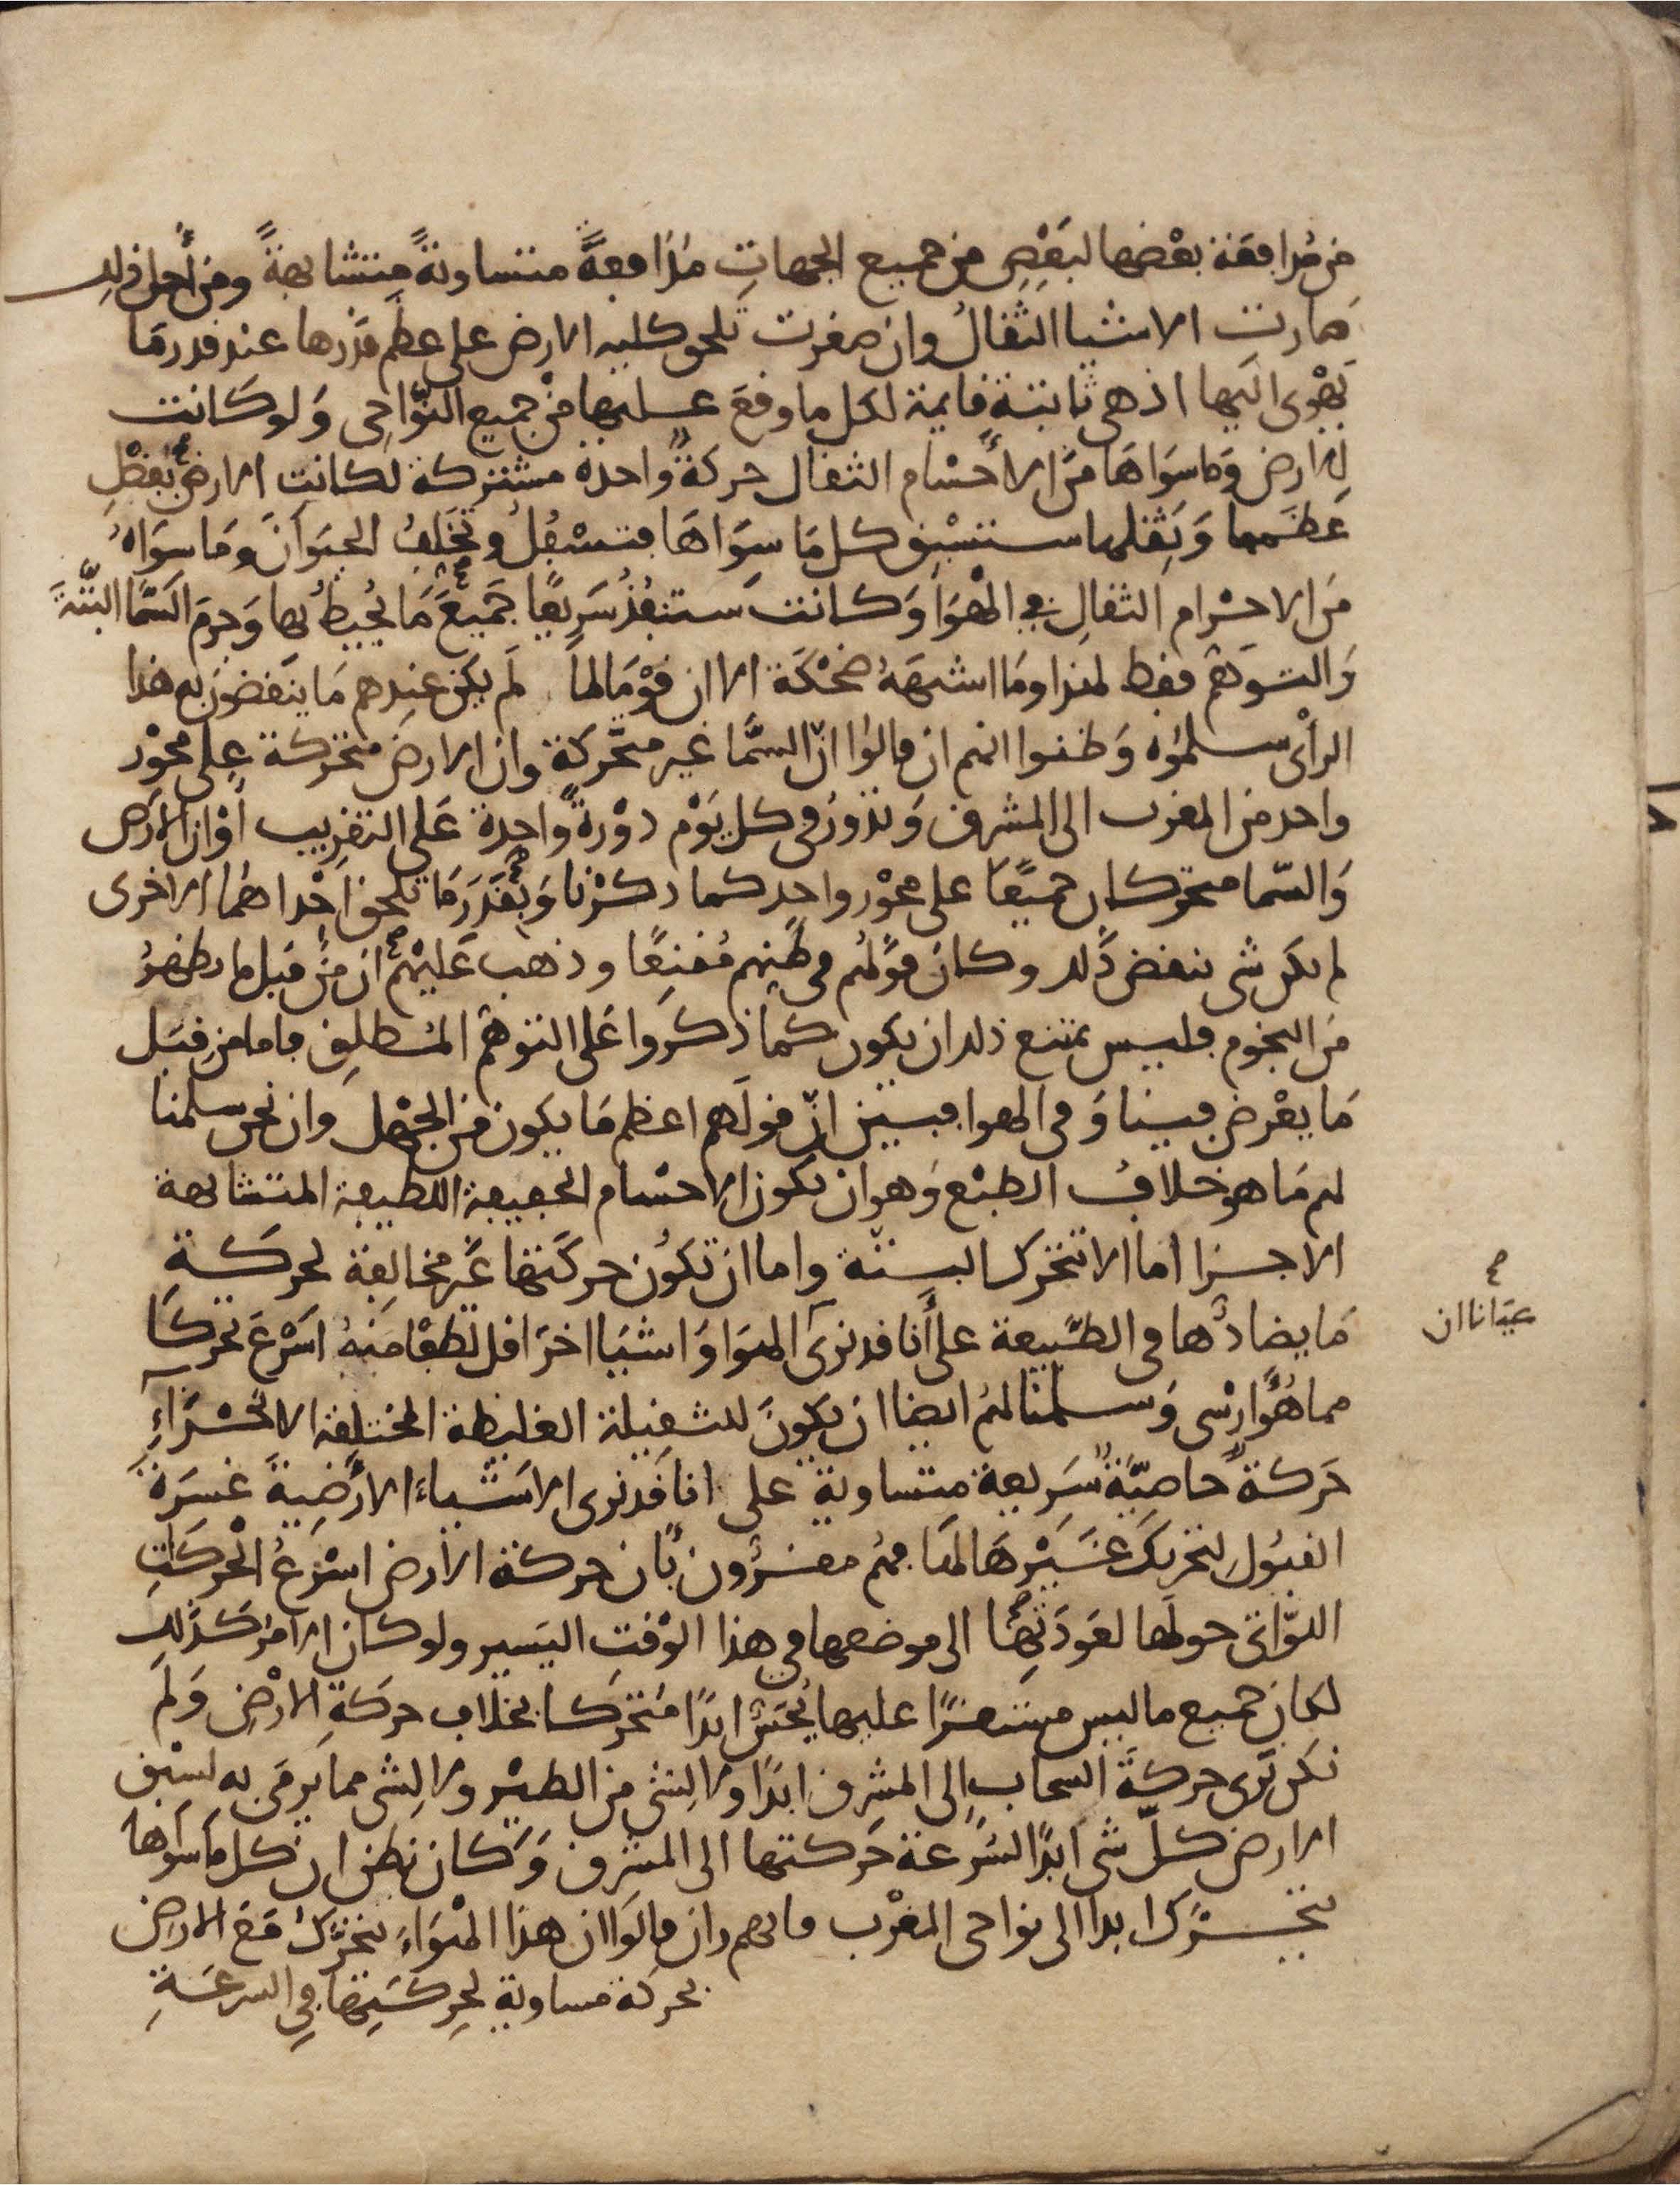 من مدافعة بعضها لبعض من جميع الجهات مدافعةً متساويةً متشابهةً ومن أجل ذلك
صارت الاشيا الثقال وان صغرت تلحق كلية الارض على عظم قدرها عند قدر ما
يهوى اليها اذ هى ثابتة قايمة لكل ما وقع عليها من جميع النواحى ولو كانت
للارض وما سواها من الأجسام الثقال حركةً واحدة مشتركة لكانت الارض بفضل
عظمها وبثقلها ستسبق كل ما سواها فتسفل وتخلف الحيوان وما سواه
من الاجرام الثقال في الهوا وكانت ستنفذ سريعًا جميع ما يحيط بها وجرم السما البتة
والتوهم فقط لهذا وما اشبهه ضحكة الا ان قوما لما لم يكن عندهم ما ينقضون به هذا
الرأى سلموه وظنوا انهم ان قالوا انّ السما غير متحركة وان الارض متحركة على محور
واحد من المغرب الى المشرق وتدور فى كل يوم دورةً واحدة على التقريب أو ان الارض
والسما متحركان جميعًا على محور واحد كما ذكرنا وبقدر ما تلحق احداهما الاخرى
لم يكن شى ينقض ذلك وكان قولهم فى ظنهم مقنعًا وذهب عليهم ان من قبل ما يظهر
من النجوم فليس يمتنع ذلك ان يكون كما ذكروا على التوهم المطلق فاما من قبل
ما يعرض فينا وفى الهوا فبين انّ قولهم اعظم ما يكون من الجهل وان نحن سلمنا
لهم ما هو خلاف الطبع وهو ان يكون الاجسام الخفيفة اللطيفة المتشابهة
الاجزا اما الا تتحرك البتة واما ان تكون حركتها غير مخالفة لحركة
ما يضادها فى الطبيعة على أنا قد نرى الهوا واشيا اخر اقل لطفا منه اسرع تحركا
مما هو ارضى وسلمنا لهم ايضا ان يكون للثقيلة الغليظة المختلفة الاجزاء
حركة خاصيّة سريعة متساوية على انا قد نرى الاشياء الأرضية عسرة
القبول لتحريك غيرها لها فهم مقرون بأن حركة الارض اسرع الحركات
اللواتى حولها لعودتها الى موضعها في هذا الوقت اليسير ولو كان الامر كذلك
لكان جميع ما ليس مستقرًا عليها يحس ابدًا متحركا بخلاف حركة الارض ولم
نكن نرى حركة السحاب الى المشرق ابدًا ولا لشى من الطير ولا لشى مما يرمى به لسبق
الارض كلّ شى ابدًا لسرعة حركتها الى المشرق وكان نظن ان كل ما سواها
يتحرك ابدا الى نواحى المغرب فانهم وان قالوا ان هذا الهواء يتحرك مع الارض
بحركة مساوية لحركتها في السرعة
عيانا ان